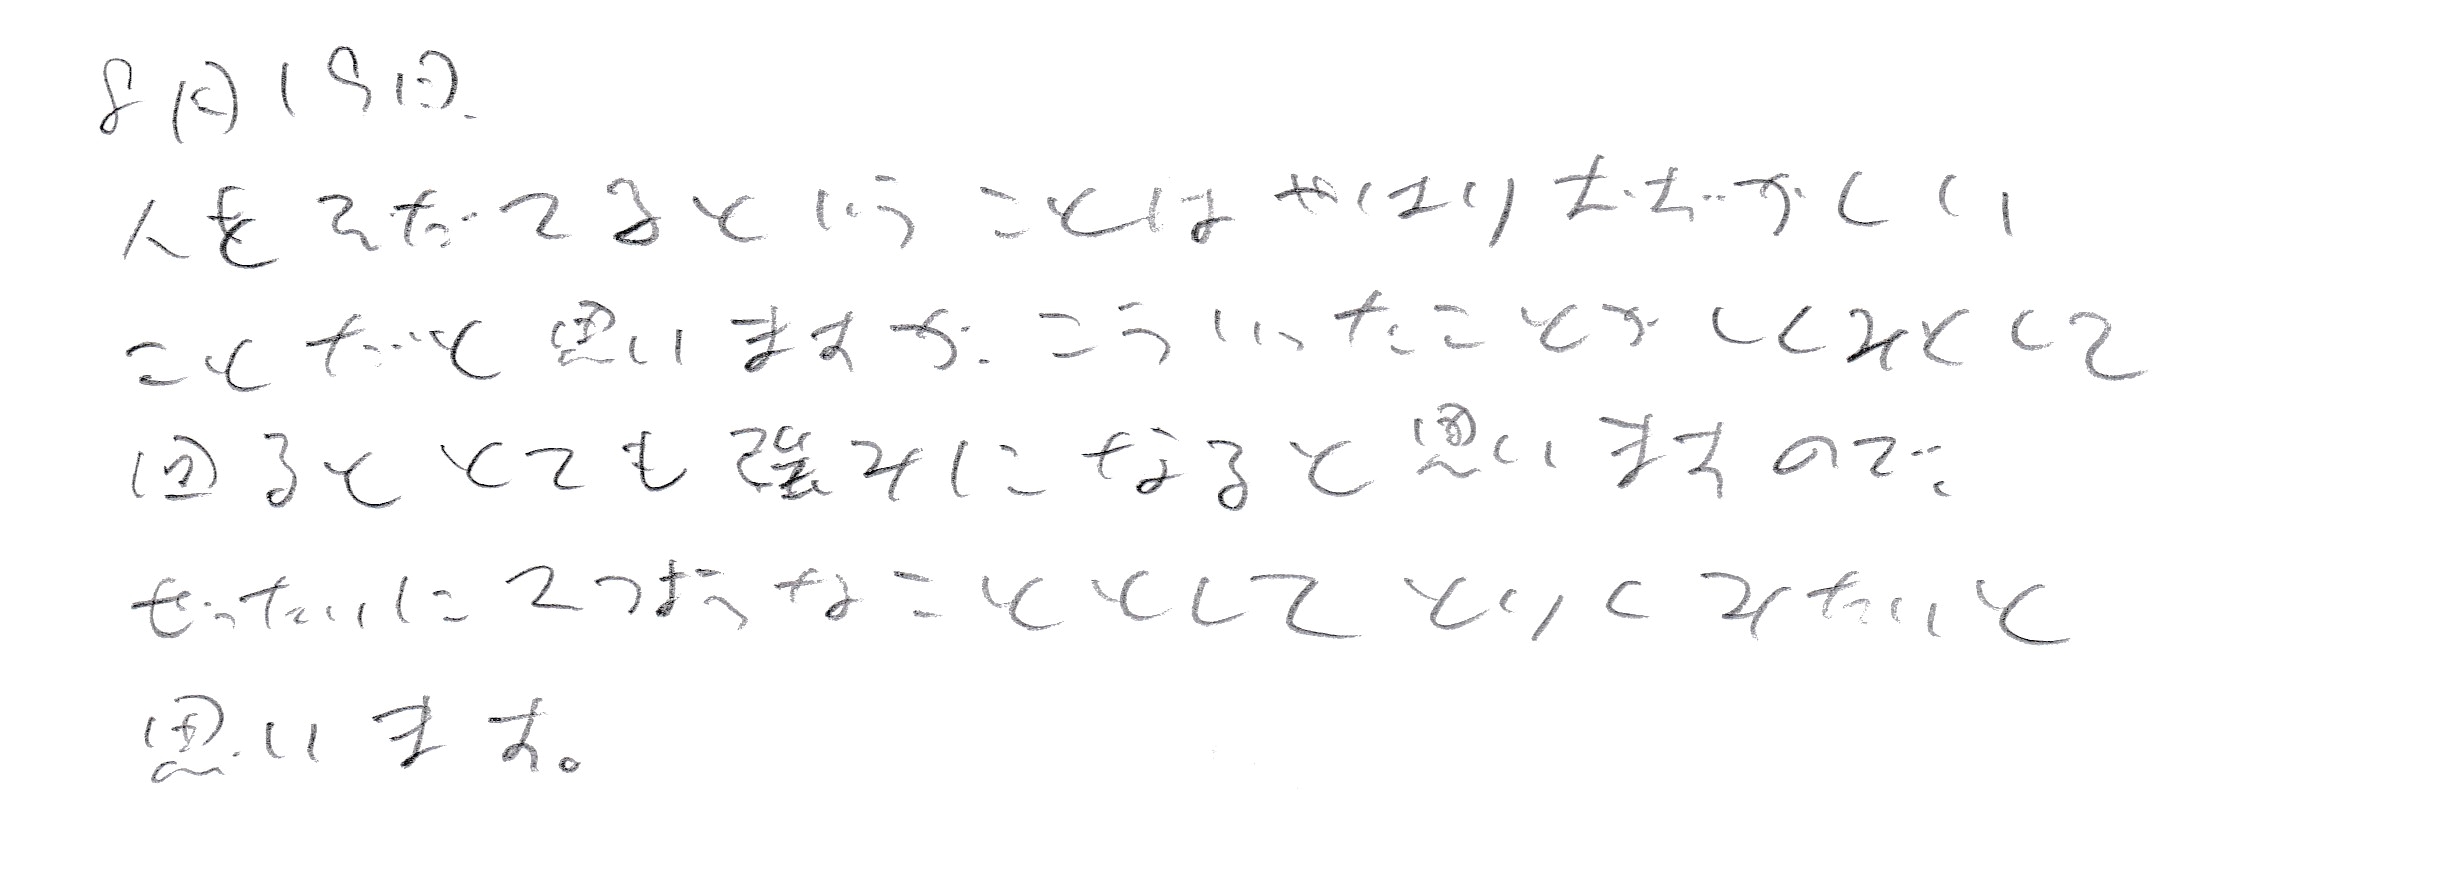 8月19日.
人をそだてるということはやはりむずかしい
ことだと思いますが、こういったことがしくみとして
回るととても強みになると思いますので、
ぜったいにひつような こととしてとりくみたいと
思います。